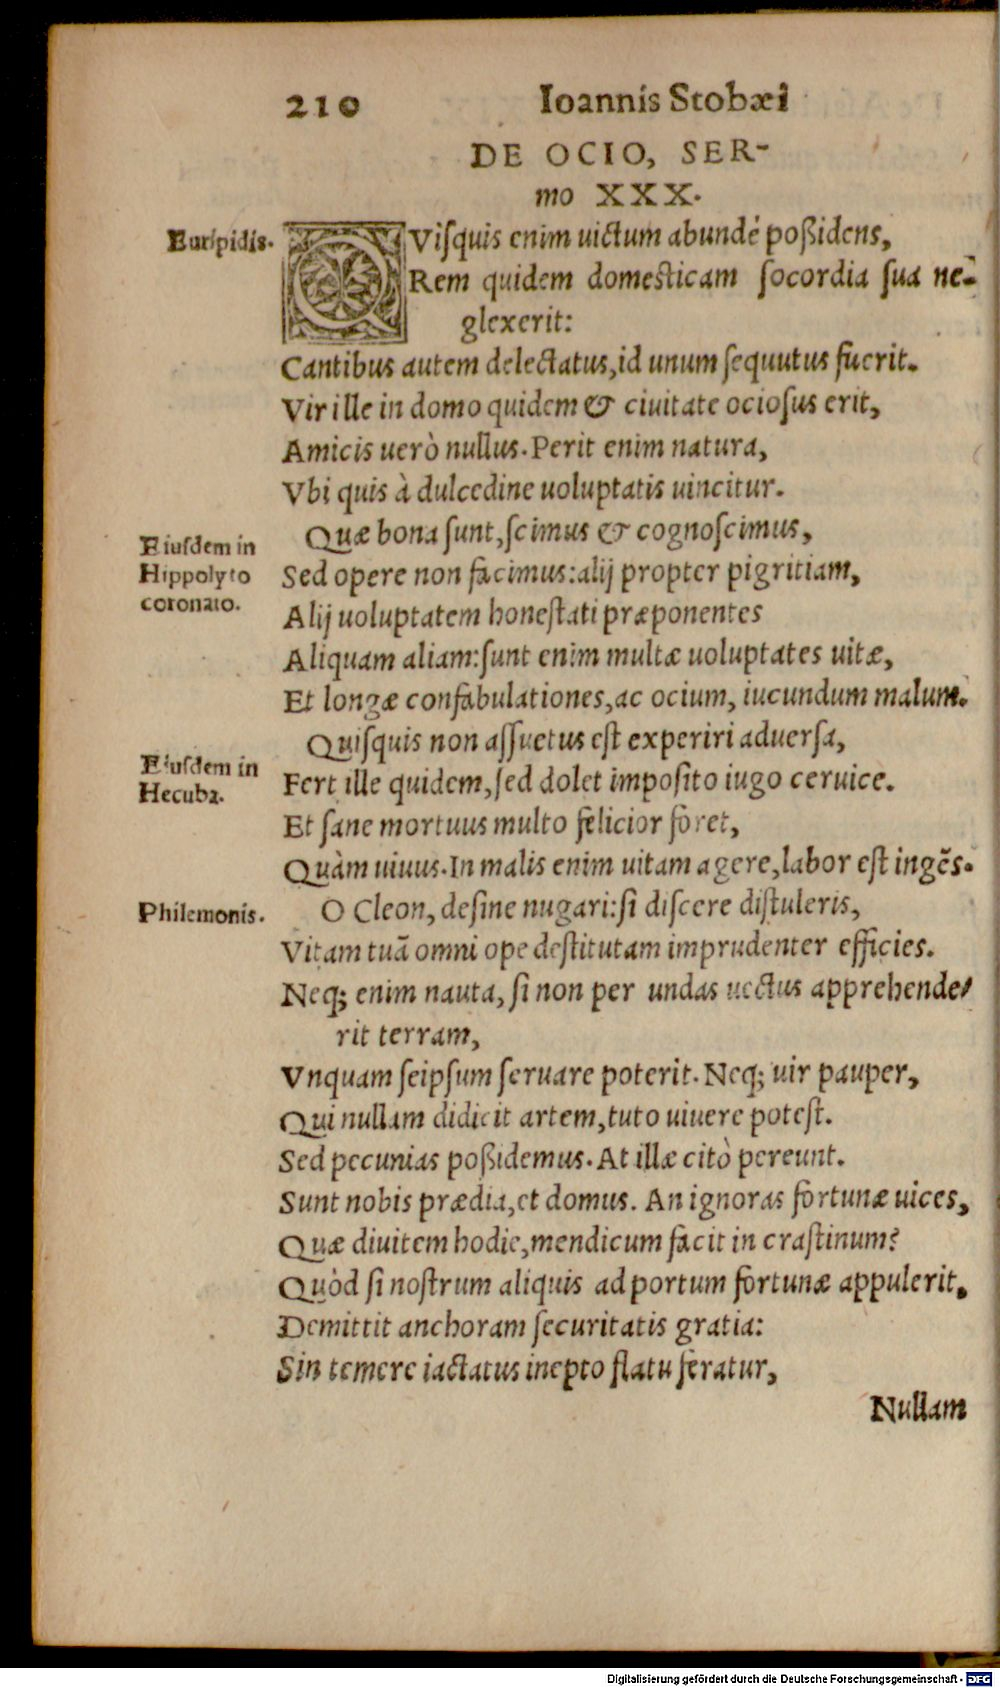 210 Ioannis Stobæi
DE OCIO, SER-
mo XXX.
Euripidis.
QVisquis enim uictum abundé poßidens,
Rem quidem domesticam socordia sua ne-
glexerit:
Cantibus autem delectatus, id unum sequutus fuerit.
Vir ille in domo quidem & ciuitate ociosus erit,
Amicis uerò nullus. Perit enim natura,
Vbi quis à dulcedine uoluptatis uincitur.
Eiusdem in
Hippolyto
coronato.
Quæ bona sunt, scimus & cognoscimus,
Sed opere non facimus: alij propter pigritiam,
Alij uoluptatem honestati præponentes
Aliquam aliam: sunt enim multæ uoluptates uitæ,
Et longæ confabulationes, ac ocium, iucundum malum.
Eiusdem in
Hecuba.
Quisquis non assuetus est experiri aduersa,
Fert ille quidem, sed dolet imposito iugo ceruice.
Et sane mortuus multo felicior foret,
Quàm uiuus. In malis enim uitam agere, labor est ingēs.
Philemonis.
O Cleon, desine nugari: si discere distuleris,
Vitam tuã omni ope destitutam imprudenter efficies.
Neq; enim nauta, si non per undas uectus apprehende-
rit terram,
Vnquam seipsum seruare poterit. Neq; uir pauper,
Qui nullam didicit artem, tuto uiuere potest.
Sed pecunias poßidemus. At illæ citò pereunt.
Sunt nobis prædia, et domus. An ignoras fortunæ uices,
Quæ diuitem hodie, mendicum facit in crastinum?
Quòd si nostrum aliquis ad portum fortunæ appulerit,
Demittit anchoram securitatis gratia:
Sin temere iactatus inepto flatu feratur,
Nullam
Digitalisierung gefördert durch die Deutsche Forschungsgemeinschaft - DFG